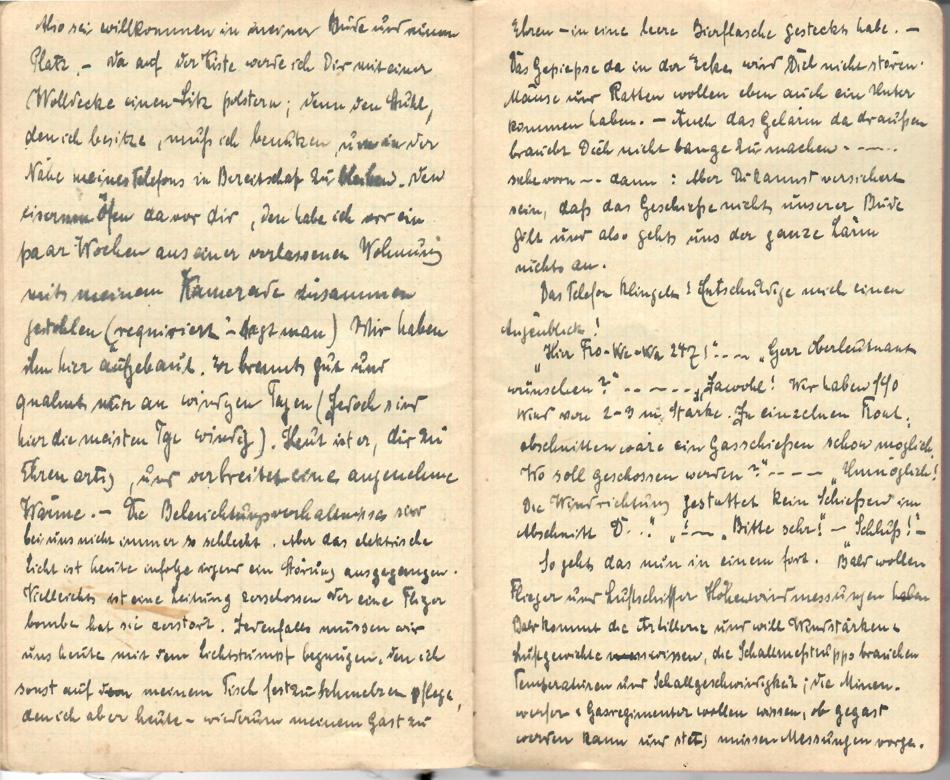 Also sei willkommen in meiner Bude und nimm
Platz. – Da auf der Kiste werde ich Dir mit einer
Wolldecke einen Sitz polstern; denn den Stuhl,
den ich besitze, muß ich benutzen, um in der
Nähe meines Telefons in Bereitschaft zu bleiben. Den
eisernen Ofen da vor dir, den habe ich vor ein
paar Wochen aus einer verlassenen Wohnung
mit meinem Kamerade zusammen
gestohlen (requiriert – sagt man) Wir haben
ihn hier aufgebaut. Er brennt gut und
qualmt nur an windigen Tagen (Jedoch sind
hier die meisten Tge windig). Heut ist er, dir zu
Ehren artig, und verbreitet eine angenehme
Wärme. – Die Beleuchtungsverhältnisse sind
bei uns nicht immer so schlecht. Aber das elektrische
Licht ist heute infolge irgend ein Störung ausgegangen.
Vielleicht ist eine Leitung zerschossen oder eine Flieger
bombe hat sie zerstört. Jedenfalls müssen wir
uns heute mit dem Lichtstumpf begnügen, den ich
sonst auf meinem Tisch festzuschmelzen pflege,
den ich aber heute – wiederum meinem Gast zu
Ehren – in eine leere Bierflasche gesteckt habe. –
Das Gepiepse da in der Ecke wird Dich nicht stören.
Mäuse und Ratten wollen eben auch ein Unter
kommen haben. – Auch das Gelärm da draußen
braucht Dich nicht bange zu machen - – – –.
siehe vorn – – dann : Aber Du kannst versichert
sein, daß das Geschieße nicht unserer Bude
gilt und also gehts uns der ganze Lärm
nichts an.
Das Telefon klingelt! Entschuldige mich einen
Augenblick!
„Hier Fro-We-Wa 247!" – – – „Herr Oberleutnant
wünschen?" – – – – – „Jawohl! Wir haben
Wind von 2–3 m Stärke. In einzelnen Front,
abschnitten wäre ein Gasschießen schon möglich.
Wo soll geschossen werden?" – – – – „Unmöglich!
Die Windrichtung gestattet kein Schießen im
Abschnitt D. .." „! – „Bitte sehr!" – Schluß! –
So gehts das nun in einem fort. Bald wollen
Flieger und Luftschiffer Höhenwindmessungen haben
Bald kommt die Artillerie und will Windstärken &
Luftgewichte wissen, die Schallmeßtrupps brauchen
Temperaturen und Schallgeschwindigkeit; die Minen-
werfer & Gasregimenter wollen wissen, ob gegast
werden kann und stets müssen Messungen vorge-